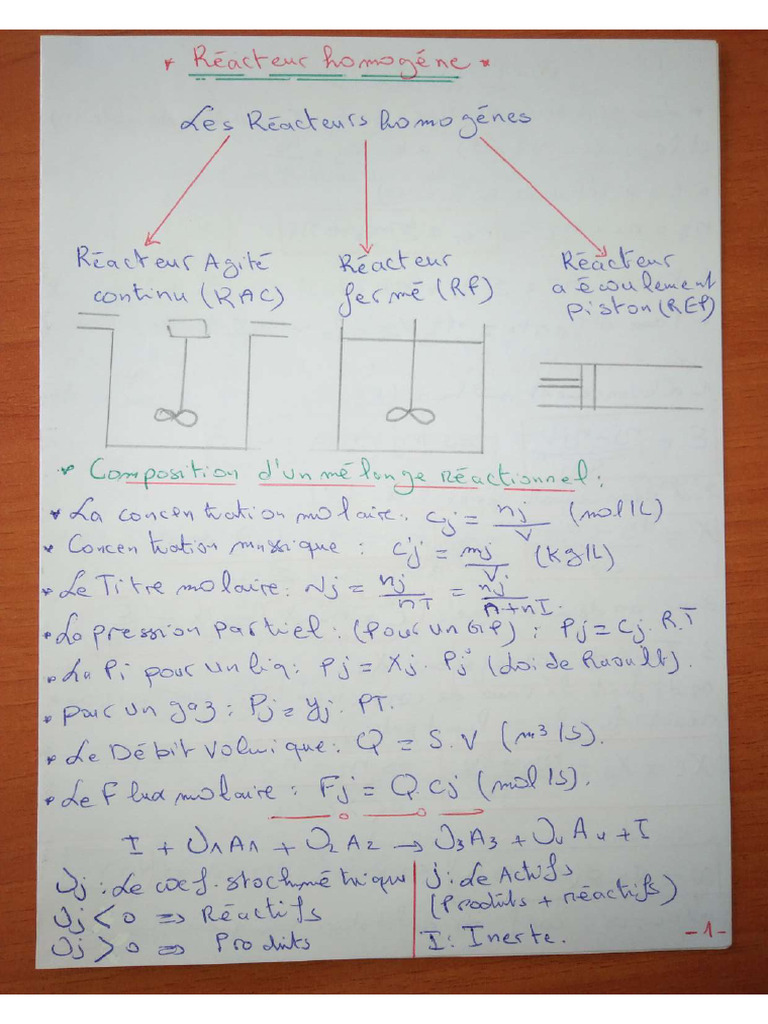 * Réacteur homogéne *
Les Réacteurs homogénes
Réacteur Agité
continu (RAC)
Réacteur
fermé (RF)
Réacteur
a écoulement
piston (REP)
* Composition d'un mélange Réactionnel :
* La concentration molaire : Cj = nj/V (mol/L)
* Concentration massique : C'j = mj/V (Kg/L)
* Le Titre molaire : Nj = nj/nT = nj/n+nI.
* La pression Partiel : (Pour un GP) : Pj = Cj. R.T
* La Pi pour un liq : Pj = Xj. Pj° (Loi de Raoult).
* pour un gaz : Pj = yj. PT.
* Le Débit Volumique : Q = S.V (m³/S).
* Le Flux molaire : Fj = Q.Cj (mol/s).
I + υ1A1 + υ2A2 → υ3A3 + υ4A4 + I
υj : Le coef. stochymétrique
υj < 0 => Réactifs
υj > 0 => Produits
j : Le Actifs
(Produits + réactifs)
I : Inerte.
-1-